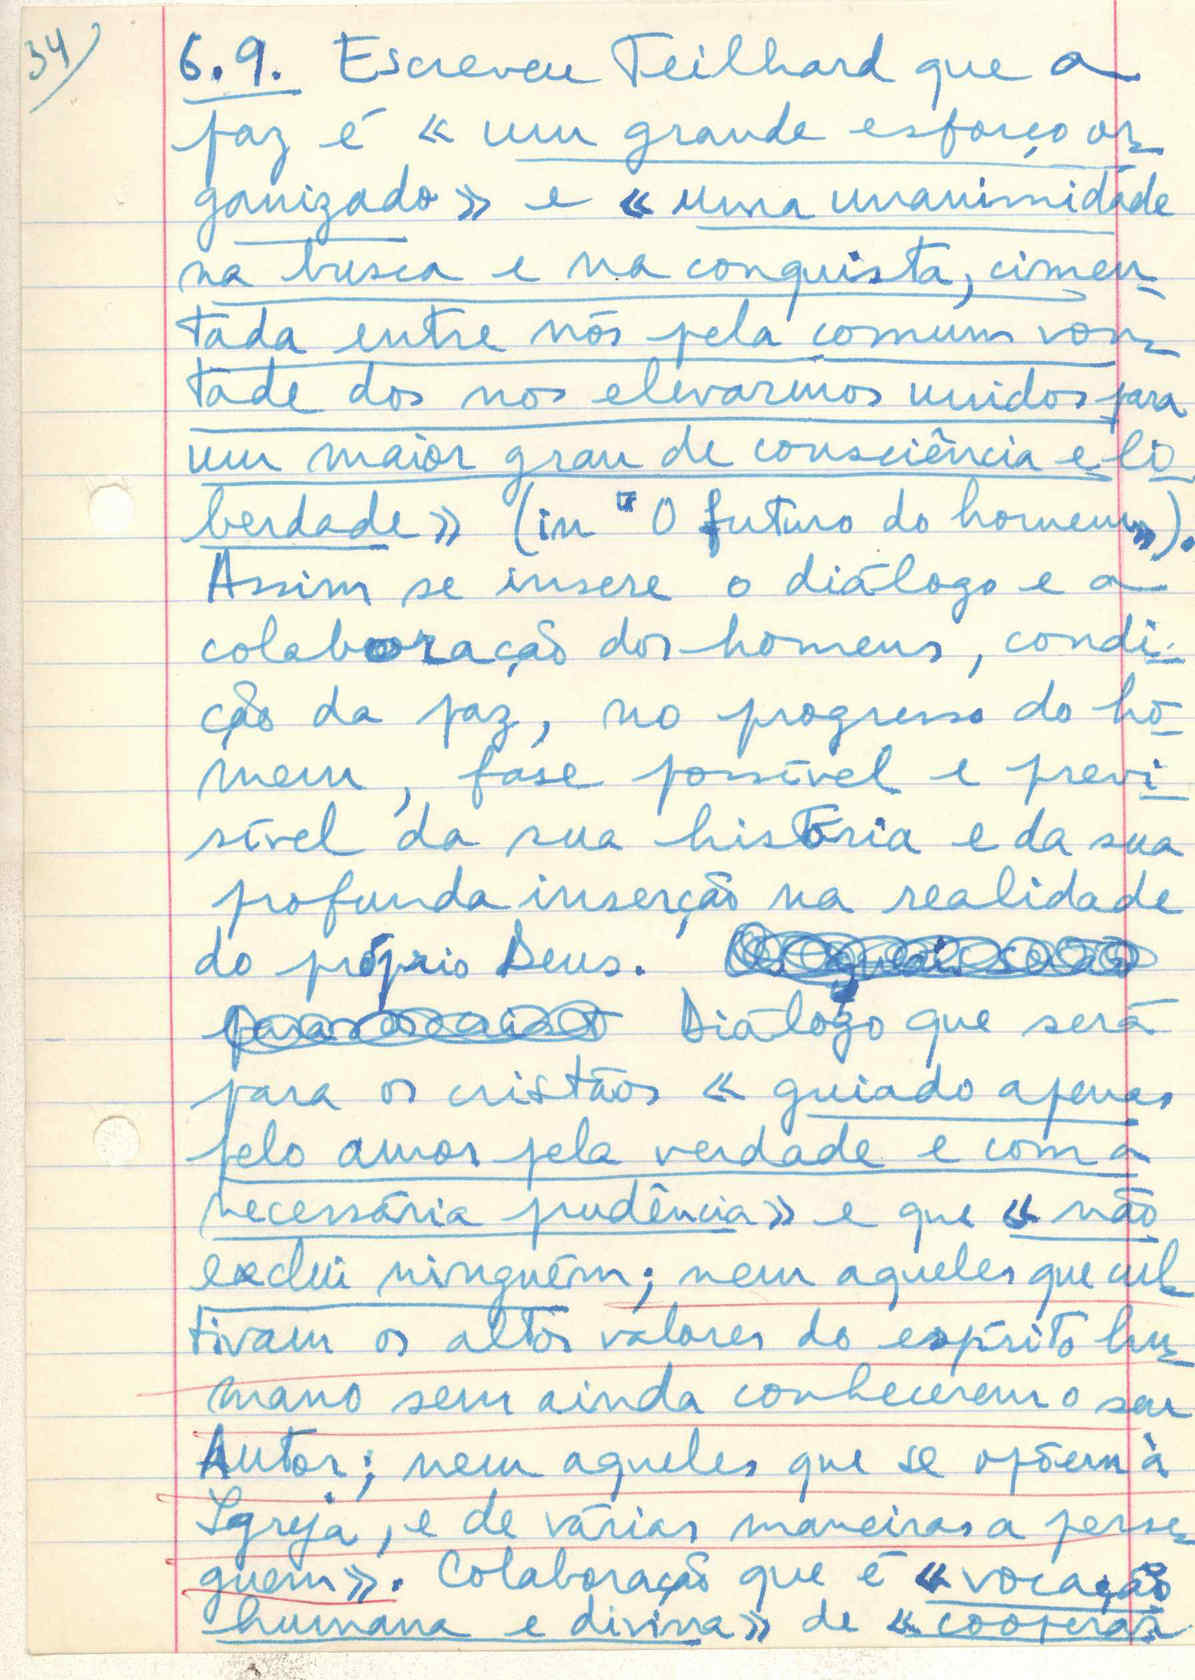 34
6.9. Escreveu Teilhard que a
paz é « um grande esforço or-
ganizado » e « uma unanimidade
na busca e na conquista, cimen-
tada entre nós pela comum von-
tade dos nos elevarmos unidos para
um maior grau de consciência e li-
berdade » (in "O futuro do homem»).
Assim se insere o diálogo e a
colaboração dos homens, condi-
ção da paz, no progresso do ho-
mem, fase possível e previ-
sível da sua história e da sua
profunda inserção na realidade
do próprio Deus.
Diálogo que será
para os cristãos « guiado apenas
pelo amor pela verdade e com a
necessária prudência » e que « não
exclui ninguém; nem aqueles que cul-
tivam os altos valores do espírito hu-
mano sem ainda conhecerem o seu
Autor; nem aqueles que se opõem à
Igreja, e de várias maneiras a perse-
guem ». Colaboração que é « vocação
humana e divina » de « cooperar